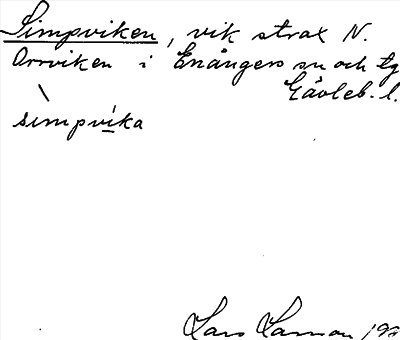 Simpviken, vik strax N.
Orrviken i Enångers sn och tg
Gävleb. l.
simpvika
Lars Larsson 19